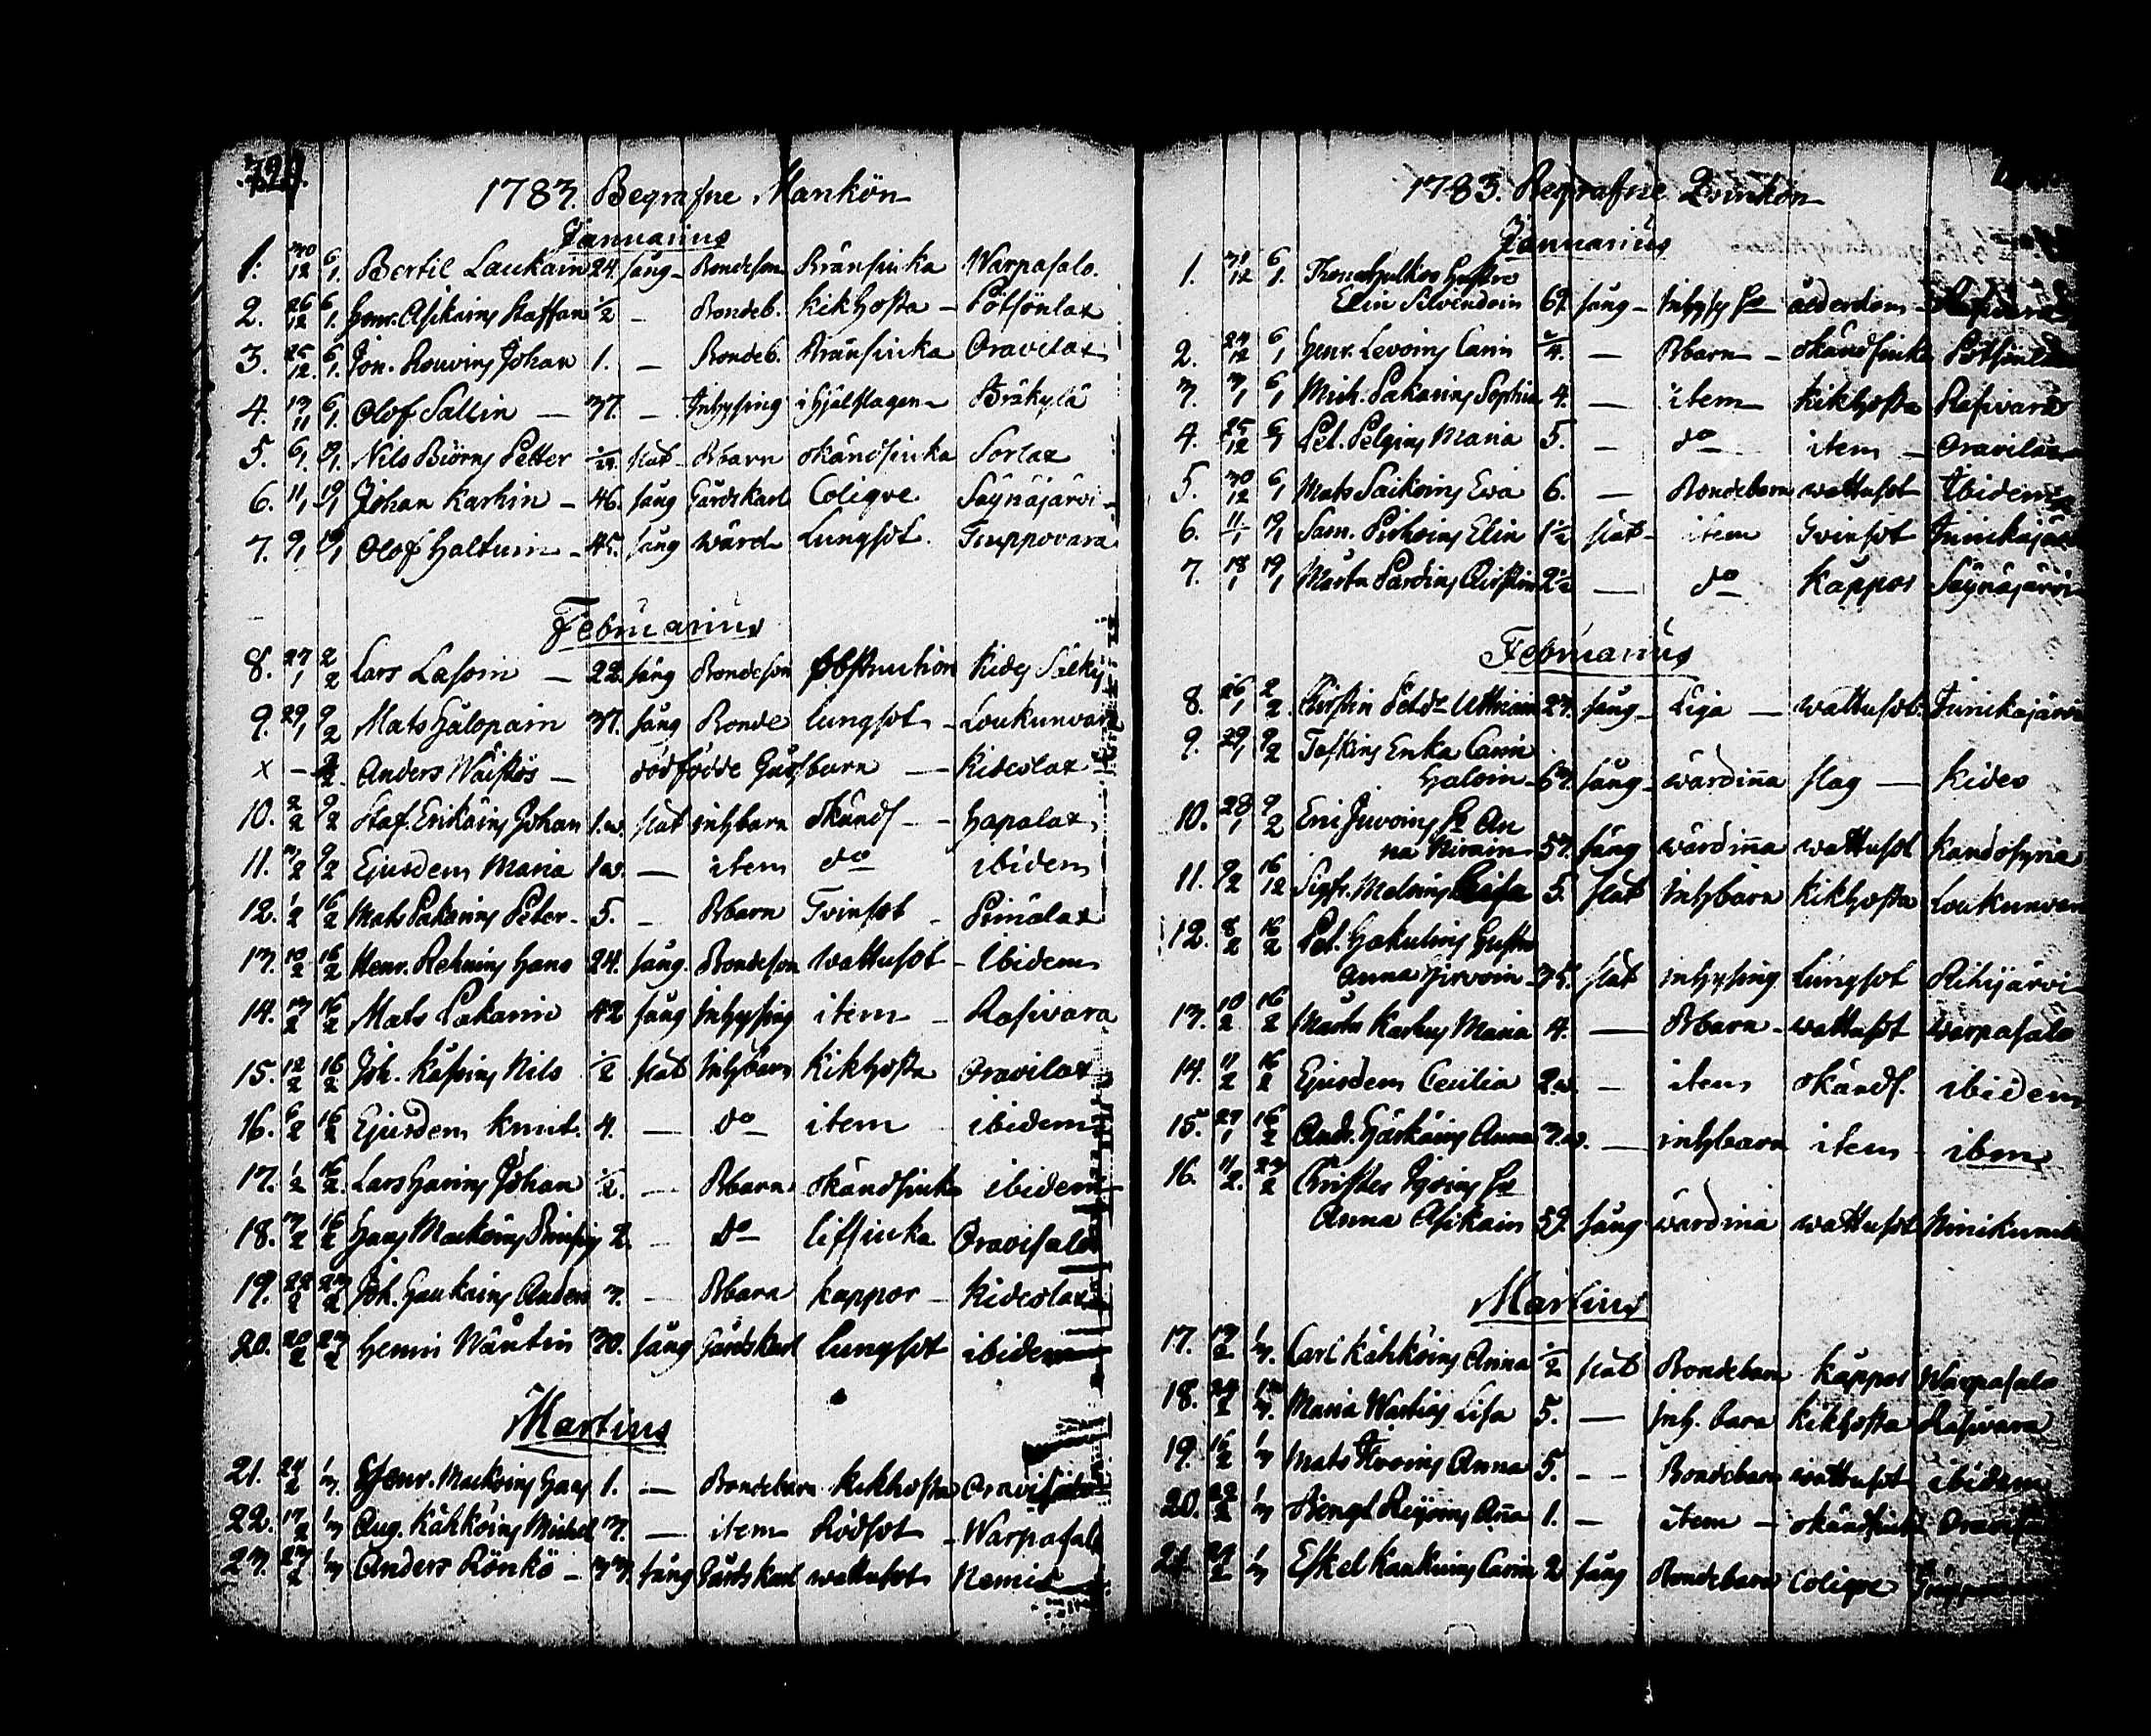 1783. Begrafne Mankön
Januarius
1. 30/12 6/1. Bertil Laukain 24. säng Bondeson Bränsiuka Warpasalo.
2. 26/12 6/1. Henr. Asikains Staffan 1/2 — Bondeb. Kikhosta — Pötsönlax
3. 25/12. 6/1. Jon. Rouvins Johan 1. — Bondeb. Bränsiuka Oravilax
4. 13/11 6/1 Olof Sallin — 37. — Inhysing ihjälslagen Bräkylä
5. 6/1. Nils Biörns Petter slät Bbarn okändsiuka Sorlax
6. 11/1 19/1 Johan Karhin — 46. säng Gårdskarl Coliqve Säynäjärvi
7. 9/1 19/1 Olof Haltuin 45. säng wärd Lungsot. Tiuppovara
Februarius
8. 27/1 2/2 Lars Lasoin — 22. säng Bondeson obstruction Kides Sälky
9. 29/1 9/2 Mats Hälopain 37. säng Bonde lungsot Loukunvara
x — Anders Wäistös — dödfödde barn — Kideslax
10. 2/2 9/2 Staf. Erikäins Johan 1.w. slät inhbarn okänds — Hapalax
11. 3/2 9/2 Ejusdem Maria 1w. — item do ibidem
12. 1/2 16/2 Mats Pakarins Peter 5. — Bbarn Tvinsot
13. 10/2 16/2 Henr. Rehnins Hans 24. säng. Bondeson wattusot — Ibidem
14. 13/2 16/2 Mats Pakarin 42 säng Inhysing item — Rasivara
15. 12/2 16/2 Joh. Nils 1/2 slät Inhbarn Kikhosta Oravilax
16. 6/2 16/2 Ejusdem Knut. 4. — do item ibidem
17. 1/2 16/2. Lars Johan 1/2. — Bbarn okändsiuka ibidem
18. 13/2 16/2 Hans 2. — do Oravisalo
19. 22/2 23/2 Joh. Haukains Anders 3. — Bbarn kappor — Kideslax
20. 20/2 23/2 Henri Wäntin 30. säng Gårdskarl lungsot ibidem
Martius
21. 24/2 1/3. Henr. Hans 1. — Bondebarn kikhosta Oravisalo
22. 17/2 1/3 Aug. Kähköins Michel 3. — item Rödsot — Warpasalo
23. 23/2 1/3 Anders Rönkö — 33. säng Gårdskarl wattusot
1783. Begrafne Qvinkön
Januarius
1. 31/12 6/1. Hustro
Elin Silvendoin 69. säng — ålderdom — Rasivara
2. 24/12 6/1 Henr. Levoins Carin 3/4. — Bbarn — okändsiuka Pötsönlax
3. 3/1 6/1 Mich. Pakarins Sophia 4. — item — kikhosta Rasivara
4. 25/12 6/1 Pet. Pelgins Maria 5. — do item — Oravilax
5. 30/12 6/1 Mats Saikoins Ewa 6. — Bondebarn wattusot Ibidem
6. 11/1 19/1 Sam. Pirhoins Elin 1 1/2 slät — item Tvinsot Juurikajärvi
7. 18/1 19/1 Mårtn Pardins Kirstin 2 1/2 — do kåppor Säynäjärvi
Februarius
8. 26/1 2/2 Kirstin 27. säng — Piga — wattusot. Juurikajärvi
9. 29/1 9/2 Taskins Enka Carin
Haloin — 63. säng — wärdinna slag — Kides
10. 28/1 9/2 Eric Juvoins H. An
na 57. säng wärdinna wattusot Kandosyria
11. 9/2 16/2 Sigfr. Caisa 5. slät Inhbarn Kikhosta Loukunvara
12. 8/2 16/2 Pet. Hakulins Hustro
Anna Hirvoin 35. slät inhysing lungsot Riihijärvi
13. 10/2 16/2 Mårtn Karhus Maria 4. — Bbarn — wattusot Warpasalo
14. 11/2 16/2 Ejusdem Cecilia 2.w. — item okänds. ibidem
15. 27/1 16/2 And. Anna 3.w. — inhbarn item ibm
16. 11/2. 23/2 Christer H.
Anna Asikain 59. säng wärdinna wattusot
Martius
17. 13/2 1/3. Carl Kähköins Anna 1/2 slät Bondebarn kåppor Warpasalo
18. 24/2 1/3. Maria Lisa 5. — Inh. barn Kikhosta Rasivara
19. 15/2 1/3 Mats Anna 5. — Bondebarn wattusot ibidem
20. 22/2 1/3 Bengt Anna 1. — item — okändsiuk
21. 24/2 1/3 Eskel Carin 2 säng Bondebarn Coliqve